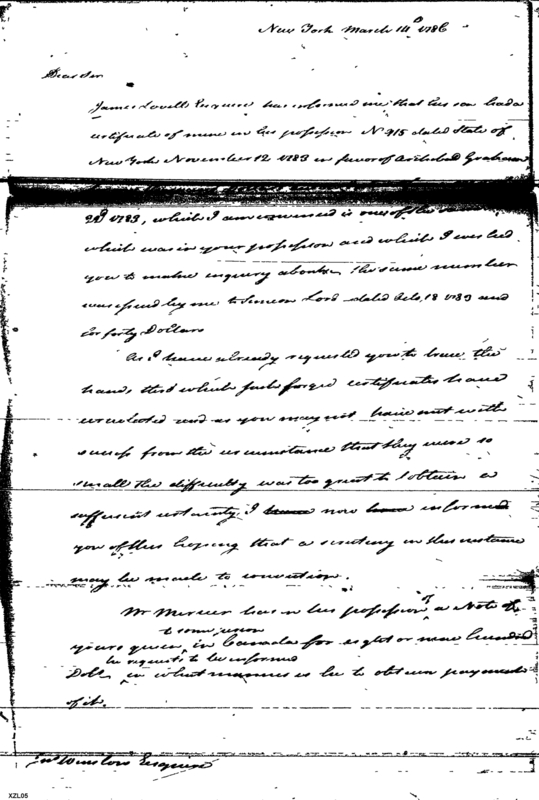 New York March 14 1786
Dear Sir
James Lovell Esquire has informed me that his son had a
certificate of mine in his possession No 915 dated State of
New York November 12 1783 in favor of Archibald Graham
1783, which I am convinced is one of the same
which was in your possession and which I wished
you to make inquiry about. The same number
was issued by me to Simeon Lord dated Feb. 18 1783 and
for forty Dollars
As I have already requested you to trace the
hands thro' which such forged certificates have
circulated and as you may not have met with
success from the circumstance that they were so
small the difficulty was too great to obtain a
sufficient certainty I now informed
you of this hoping that a scrutiny in this instance
may be made to conviction.
Mr Mercier has in his possession a Note of
to some person
yours given in Canada for eight or nine hundred
he requests to be informed
Dolls in what manner is he to obtain payment
of it.
Jno Winslow Esquire
XZL05